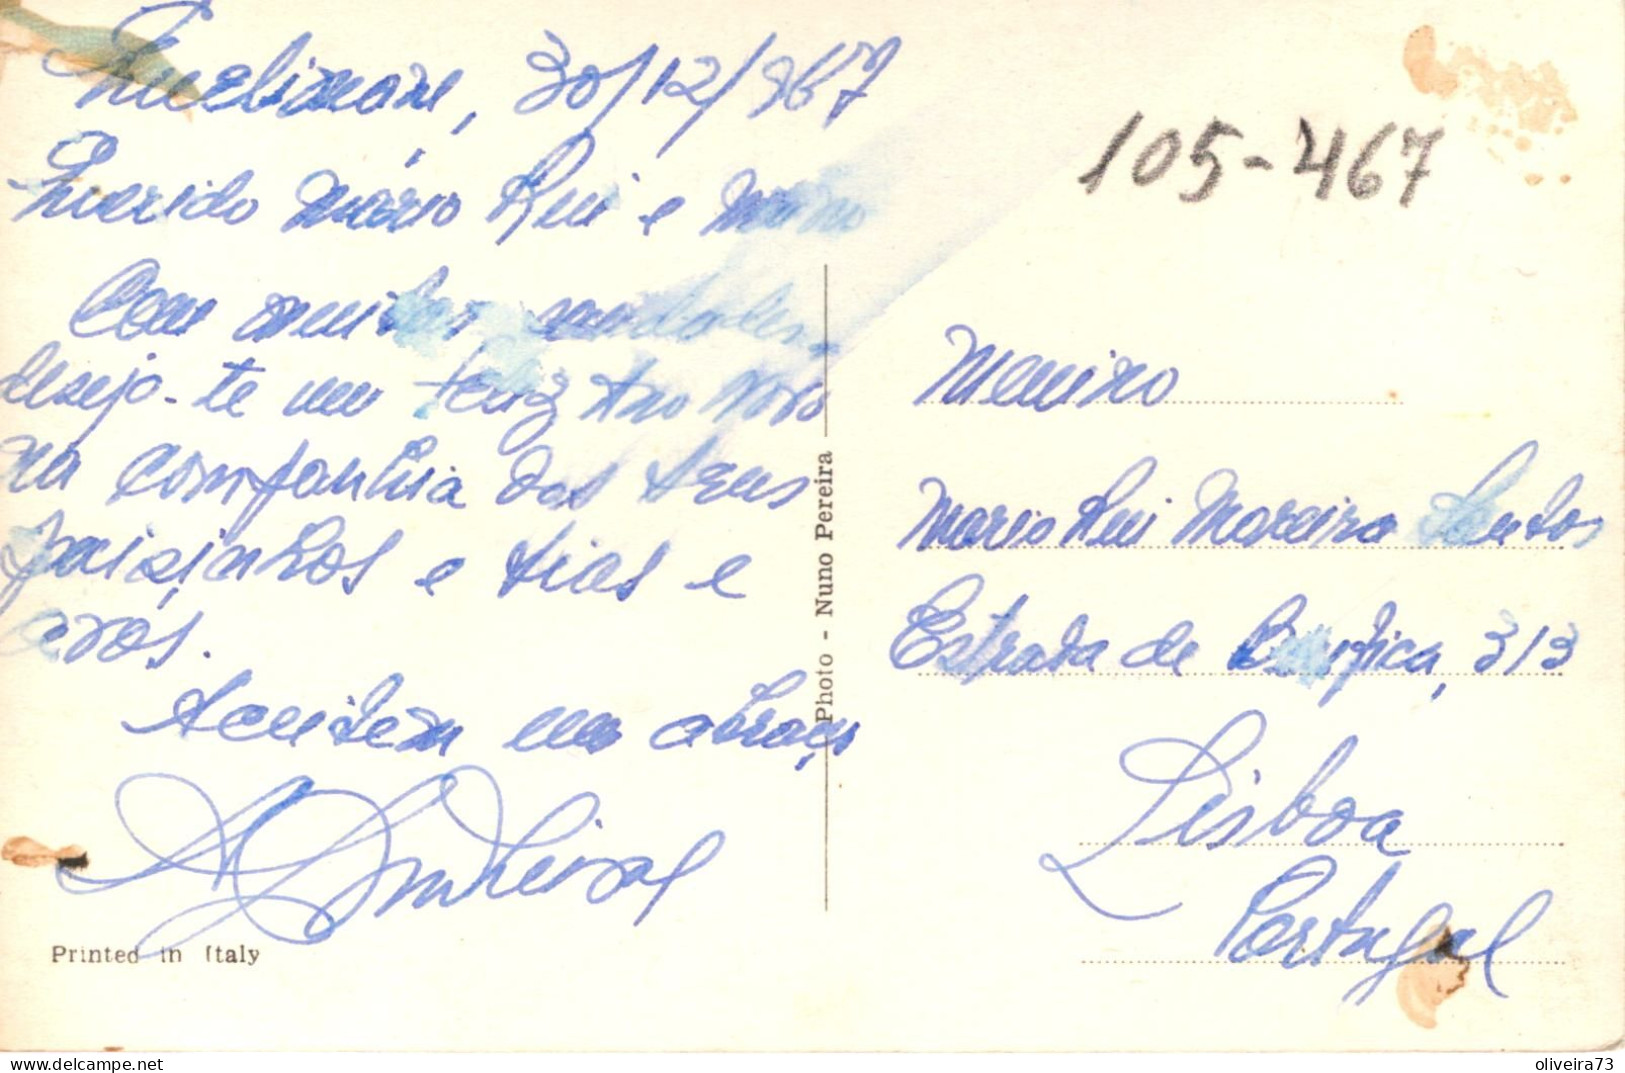 Quelimane, 30/12/967
Querido Mário Rui e mano
Com muitas saudades,
desejo-te um feliz Ano Novo
na companhia dos teus
paisinhos e tias e
avós.
Aceitem um abraço
Printed in Italy
Photo - Nuno Pereira
105-467
Menino
Mario Rui Moreira Santos
Estrada de Benfica, 313
Lisboa
Portugal
oliveira73